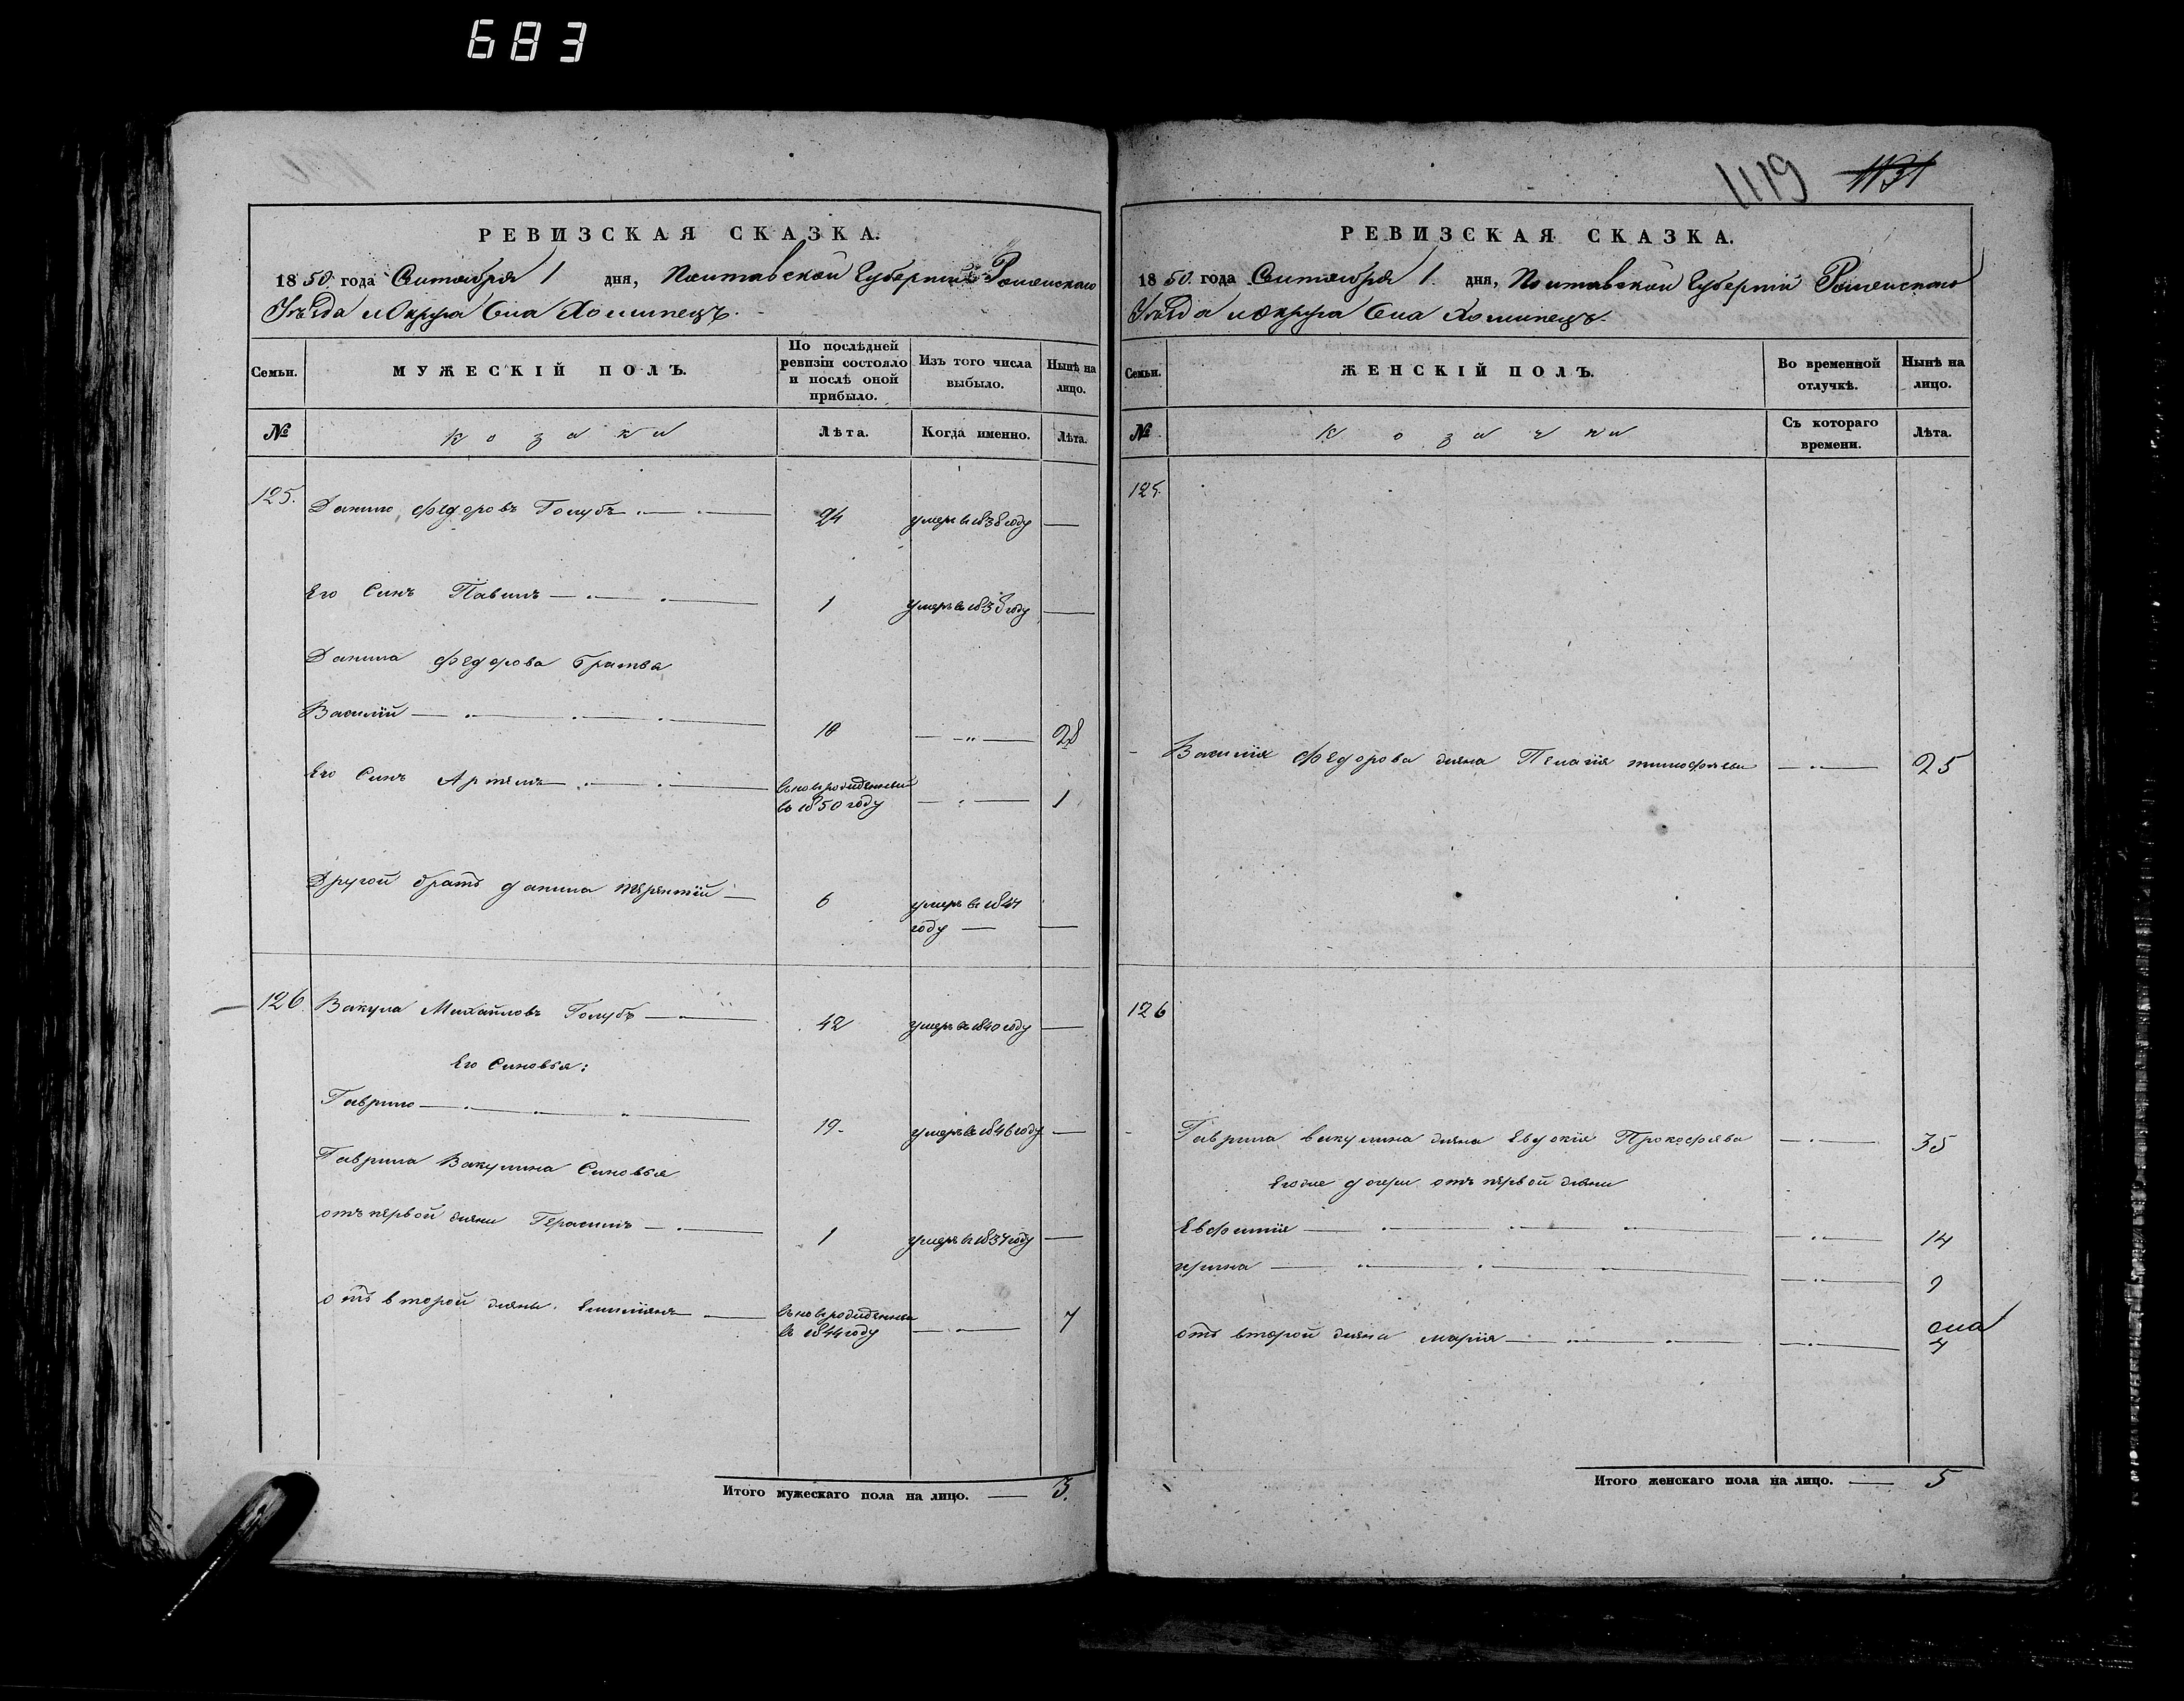 683
1119 1131
РЕВИЗСКАЯ СКАЗКА.
1850 года Сентября 1 дня, Полтавской Губерніи Роменскаго
Уѣзда и Округа Села Хоминецъ.
Семьи. МУЖЕСКІЙ ПОЛЪ. По послѣдней ревизіи состояло и послѣ оной прибыло. Изъ того числа выбыло. Нынѣ на лицо.
№ Козаки Лѣта. Когда именно. Лѣта.
125. Данило Федоровъ Голубъ 24 умеръ в 1838 году —
Его Синъ Павилъ 1 умеръ в 1838 году —
Данила Федорова Братья
Василій 10 — „ — 28
Его Синъ Артемъ вновьрожденный в 1850 году — „ — 1
Другой братъ Данила Терентій 6 умеръ в 1847 году —
126. Вакула Михайловъ Голубъ 42 умеръ в 1840 году —
Его Синовья:
Гаврило 19 умеръ в 1846 году —
Гаврила Вакулина Синовья
отъ первой жени Герасимъ 1 умеръ в 1837 году —
отъ второй жены Емиліянъ вновьрожденный в 1844 году — „ — 7
Итого мужескаго пола на лицо. — 3.
РЕВИЗСКАЯ СКАЗКА.
1850 года Сентября 1 дня, Полтавской Губерніи Роменскаго
Уѣзда и Округа Села Хоминецъ.
Семьи. ЖЕНСКІЙ ПОЛЪ. Во временной отлучкѣ. Нынѣ на лицо.
№ Козачки Съ котораго времени. Лѣта.
125.
Василія Федорова жена Пелагія Тимофѣева — „ — 25
126
Гаврила Вакулина жена Евдокія Прокофіева — „ — 35
Егоже дочери отъ первой жени
Евфимія — „ — 14
Ирина — „ — 9
отъ второй жени Марія — „ — 4
Итого женскаго пола на лицо. — 5